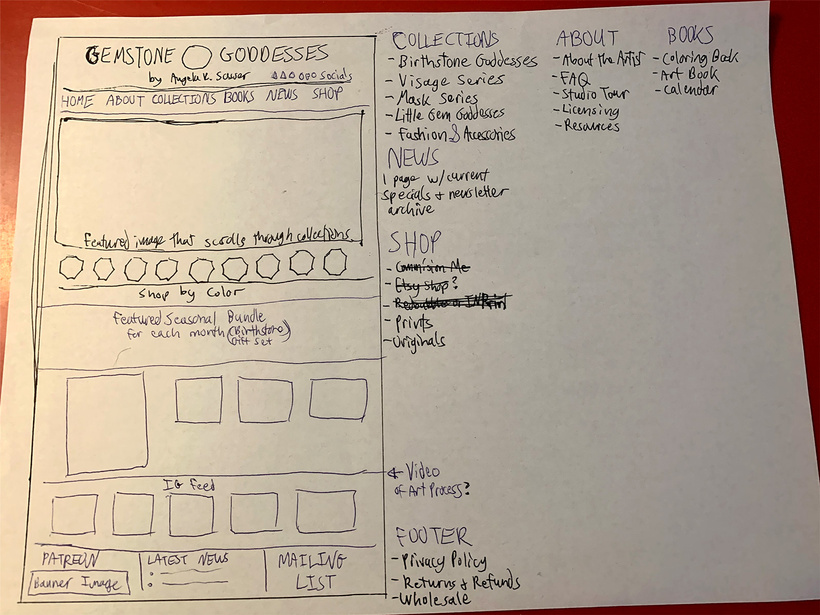 GEMSTONE GODDESSES
by Angela R. Sasser
socials
HOME ABOUT COLLECTIONS BOOKS NEWS SHOP
Featured image that scrolls through collections.
Shop by Color
Featured Seasonal Bundle
for each month (Birthstone
Gift Set)
IG Feed
PATREON
Banner Image
LATEST NEWS
MAILING
LIST
COLLECTIONS
- Birthstone Goddesses
- Visage Series
- Mask Series
- Little Gem Goddesses
- Fashion & Accessories
NEWS
1 page w/current
specials + newsletter
archive
SHOP
- Commision Me
- Etsy Shop?
- Prints
- Originals
Video
of Art Process?
FOOTER
- Privacy Policy
- Returns & Refunds
- Wholesale
ABOUT
- About the Artist
- FAQ
- Studio Tour
- Licensing
- Resources
BOOKS
- Coloring Book
- Art Book
- Calendar